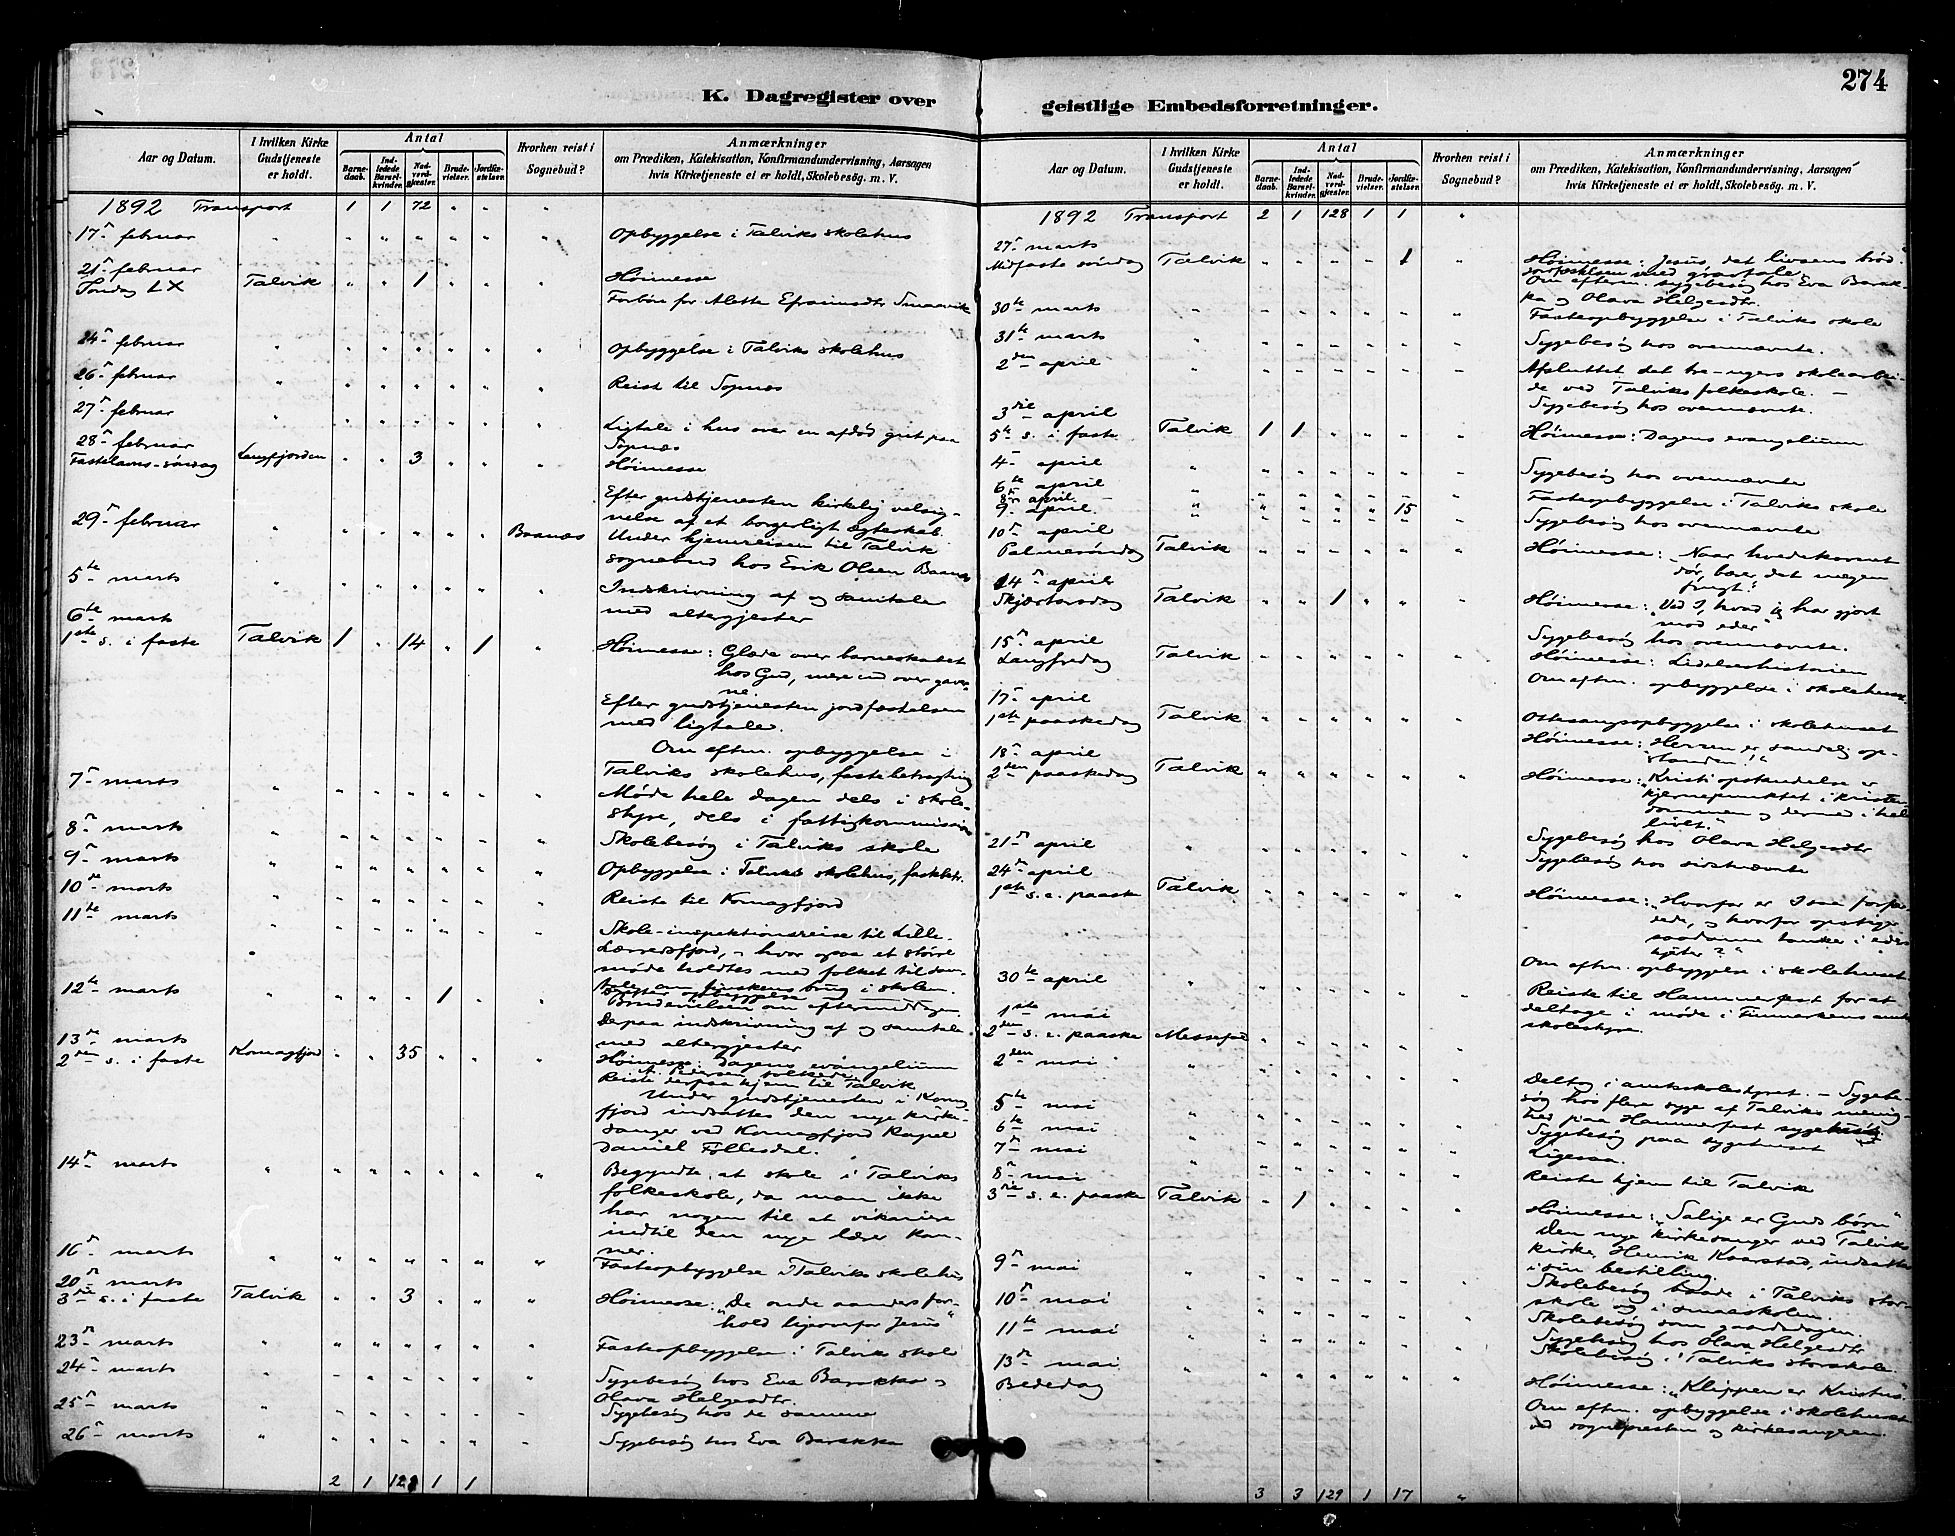 274
K. Dagregister over
Aar og Datum.
I hvilken Kirke Gudstjeneste er holdt.
Antal
Barne-daab.
Ind-ledede Barsel-kvinder.
Nad-verd-gjester.
Brude-vielser.
Jordfæ-stelser.
Hvorhen reist i Sognebud?
Anmærkninger
om Prædiken, Katekisation, Konfirmandundervisning, Aarsagen
hvis Kirketjeneste ei er holdt, Skolebesøg. m. V.
1892 Transport 1 1 72 " " "
17de februar " " " " " " " Opbyggelse i Talviks skolehus
21de februar
Søndag LX Talvik " " 1 " " " Høimesse
Forbøn for Alette Efraimsdtr
24de februar " " " " " " " Opbyggelse i Talviks skolehus
26de februar " " " " " " " Reist til Sopnæs
27de februar " " " " " " " Ligtale i hus over en afdød gut paa
Sopnæs
28de februar
Fastelavns-søndag Langfjorden " " 3 " " " Høimesse
Efter gudstjenesten kirkelig velsig-
nelse af et borgerligt ægteskab.
29de februar " " " " " " Baanæs Under hjemreisen til Talvik
sognebud hos Erik Olsen Baanæs
5te marts " " " " " " Indskrivning af og samtale
med altergjester
6te marts
1ste s. i faste Talvik 1 " 14 " 1 " Høimesse: Glæde over barneskabet
hos Gud, mere end over gaver-
ne.
Efter gudstjenesten jordfæstelsen
med ligtale.
Om eftm. opbyggelse i
Talviks skolehus, fastebetragtning
7de marts " " " " " " " Møde hele dagen dels i skole-
styre, dels i fattigkommissionen
8de marts " " " " " " " Skolebesøg i Talviks skole
9de marts " " " " " " " Opbyggelse i Talviks skolehus, fastebetr.
10de marts " " " " " " " Reiste til Komagfjord
11te marts " " " " " " " Skole-inspektionsreise til Lille-
Lerresfjord, - hvor ogsaa et større
møde holdtes med folket til sam-
tale om finskens brug i skolen.
12te marts " " " " 1 " " Brudevielsen om eftermiddagen
Derpaa indskrivning af og samtale
med altergjester
13de marts
2den s. i faste Komagfjord " " 35 " " " Høimesse: Dagens evangelium
Reiste derpaa hjem til Talvik
Under gudstjenesten i Komag-
fjord indsattes den nye kirke-
sanger ved Komagfjord Kapel
Daniel Føllesdal.
14de marts " " " " " " " Begyndte at skole i Talviks
folkeskole, da man ikke
har nogen til at vikariere
indtil den nye lærer kom-
mer.
16de marts " " " " " " " Fasteopbyggelse i Talviks skolehus
20de marts
3die s. i faste Talvik " " 3 " " " Høimesse: "De onde aanders for-
hold ligeoverfor Jesus"
23de marts " " " " " " " Fasteopbyggelse i Talviks skole
24de marts " " " " " " " Sygebesøg hos Eva Barakka og
Olava Helgesdtr.
25de marts " " " " " " " Sygebesøg hos de samme
26de marts " " " " " " " Sygebesøg hos Eva Barakka
2 1 128 1 1
geistlige Embedsforretninger.
Aar og Datum.
I hvilken Kirke Gudstjeneste er holdt.
Antal
Barne-daab.
Ind-ledede Barsel-kvinder.
Nad-verd-gjester.
Brude-vielser.
Jordfæ-stelser.
Hvorhen reist i Sognebud?
Anmærkninger
om Prædiken, Katekisation, Konfirmandundervisning, Aarsagen
hvis Kirketjeneste ei er holdt, Skolebesøg. m. V.
1892 Transport 2 1 128 1 1 "
27de marts
Midfaste søndag Talvik " " " " 1 " Høimesse: Jesus, det livsens brød.
Jordfæstelsen med gravtale
Om efterm. sygebesøg hos Eva Barak-
ka og Olava Helgesdtr.
30te marts " " " " " " " Fasteopbyggelse i Talviks skole
31te marts " " " " " " " Sygebesøg hos ovennævnte.
2den april " " " " " " " Afsluttet det tre-ugers skolearbei-
de ved Talviks folkeskole. -
Sygebesøg hos ovennævnte.
3die april
5te s. i faste Talvik 1 1 " " " " Høimesse: Dagens evangelium
4de april " " " " " " " Sygebesøg hos ovennævnte
6te april " " " " " " " Fasteopbyggelse i Talviks skole
8de april.
9. april. " " " " " 15 " Sygebesøg hos ovennævnte
10de april
Palmesøndag Talvik " " " " " " Høimesse: "Naar hvedekornet
dør, bærer det megen
frugt."
14de april
Skjærtorsdag Talvik " " 1 " " " Høimesse: "Ved I, hvad jeg har gjort
mod eder"
Sygebesøg hos ovennævnte.
15de april
Langfredag Talvik " " " " " " Høimesse: Lidelseshistorien
Om eftm. opbyggelse i skolehuset.
17de april
1ste paaskedag Talvik " " " " " " Ottesangsopbyggelse i skolehuset
Høimesse: "Herren er sandelig op-
standen!"
18de april
2den paaskedag Talvik " " " " " " Høimesse: "Kristi opstandelse er
kjernepunktet i kristen-
dommen og dermed i hele
livet."
21de april " " " " " " " Sygebesøg hos Olava Helgesdtr
Sygebesøg hos sidstnævnte
24de april
1ste s. e. paaske Talvik " " " " " " Høimesse: "Hvorfor er I saa forfær-
dede, og hvorfor opstiger
saadanne tanker i eders
hjerter?"
Om eftm. opbyggelse i skolehuset.
30te april " " " " " " " Reiste til Hammerfest for at
deltage i møde i Finmarkens amts-
skolestyre.
1ste mai
2den s. e. paaske Messefald " " " " " "
2den mai " " " " " " " Deltog i amtsskolestyret. - Sygebe-
søg hos flere syge af Talviks menig-
hed paa Hammerfest sygehus
5te mai " " " " " " " Sygebesøg paa sygehuset
6te mai " " " " " " " Ligesaa.
7de mai " " " " " " " Reiste hjem til Talvik
8de mai
3die s. e. paaske Talvik " 1 " " " " Høimesse: "Salige er Guds børn"
Den nye kirkesanger ved Talviks
kirke, Henrik Kaarstad, indsattes
i sin bestilling.
9de mai " " " " " " " Skolebesøg baade i Talviks stor-
skole og i smaaskolen.
10de mai " " " " " " " Skolebesøg som gaarsdagen.
11te mai " " " " " " " Sygebesøg hos Olava Helgesdtr
Skolebesøg i Talviks storskole.
13de mai
Bededag " " " " " " " Høimesse: "Klippen er Kristus"
Om eftm. opbyggelse i skolehuset
ved sognepresten og kirkesangeren.
3 3 129 1 17 "